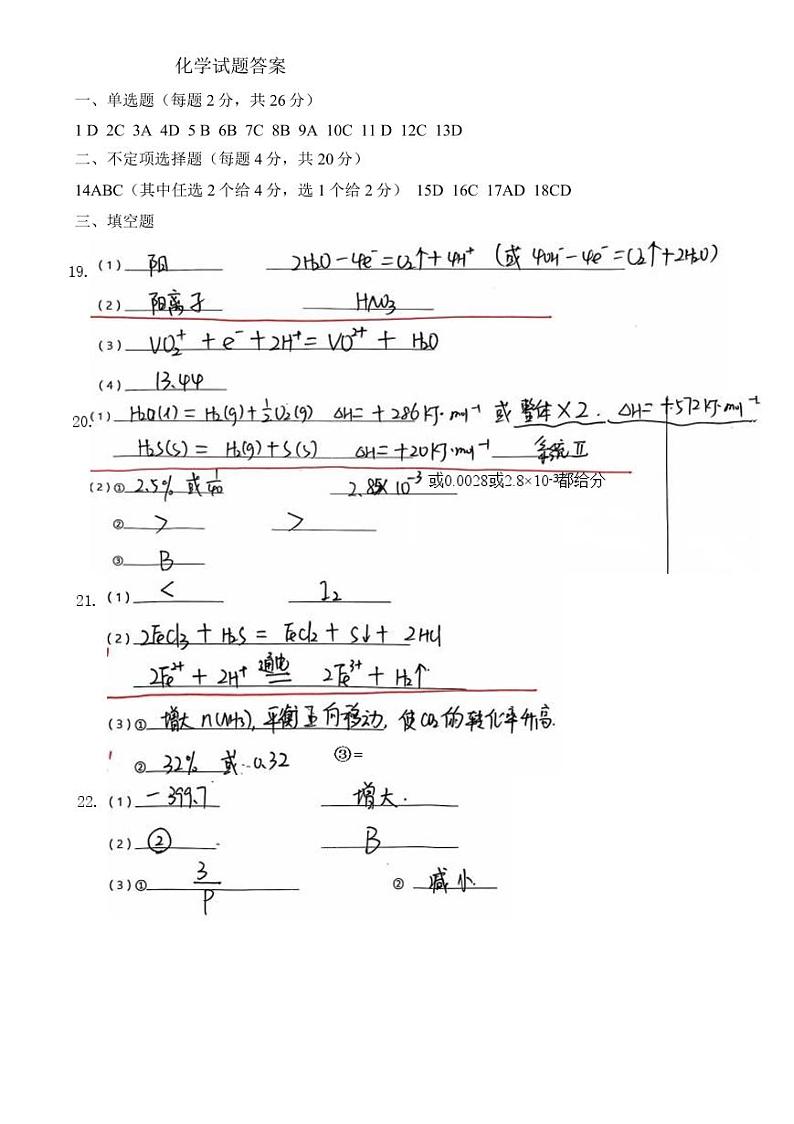 化学试题答案
一、单选题（每题2分，共26分）
1 D 2C 3A 4D 5 B 6B 7C 8B 9A 10C 11 D 12C 13D
二、不定项选择题（每题4分，共20分）
14ABC（其中任选2个给4分，选1个给2分） 15D 16C 17AD 18CD
三、填空题
19. (1) 阳 2H₂O-4e⁻=O₂↑+4H⁺ (或 4OH⁻-4e⁻=O₂↑+2H₂O)
(2) 阳离子 HNO₃
(3) VO₂⁺ + e⁻ + 2H⁺ = VO²⁺ + H₂O
(4) 13.44
20.(1) H₂O(l)=H₂(g)+½O₂(g) ΔH=+286KJ·mol⁻¹ 或 整体×2. ΔH=+572KJ·mol⁻¹
H₂S(s)= H₂(g)+S(s) ΔH=+20KJ·mol⁻¹ 系统Ⅱ
(2)① 2.5% 或 1/40 2.85×10⁻³ 或0.0028或2.8×10⁻³都给分
② > >
③ B
21. (1) < I₂
(2) 2FeCl₃ + H₂S = FeCl₂ + S↓ + 2HCl
2Fe²⁺ + 2H⁺ 通电== 2Fe³⁺ + H₂↑
(3)① 增大n(NH₃), 平衡正向移动, 使CO₂的转化率升高.
② 32% 或 0.32 ③=
22. (1) -399.7 增大.
(2) ② B
(3)① 3/P ② 减小.